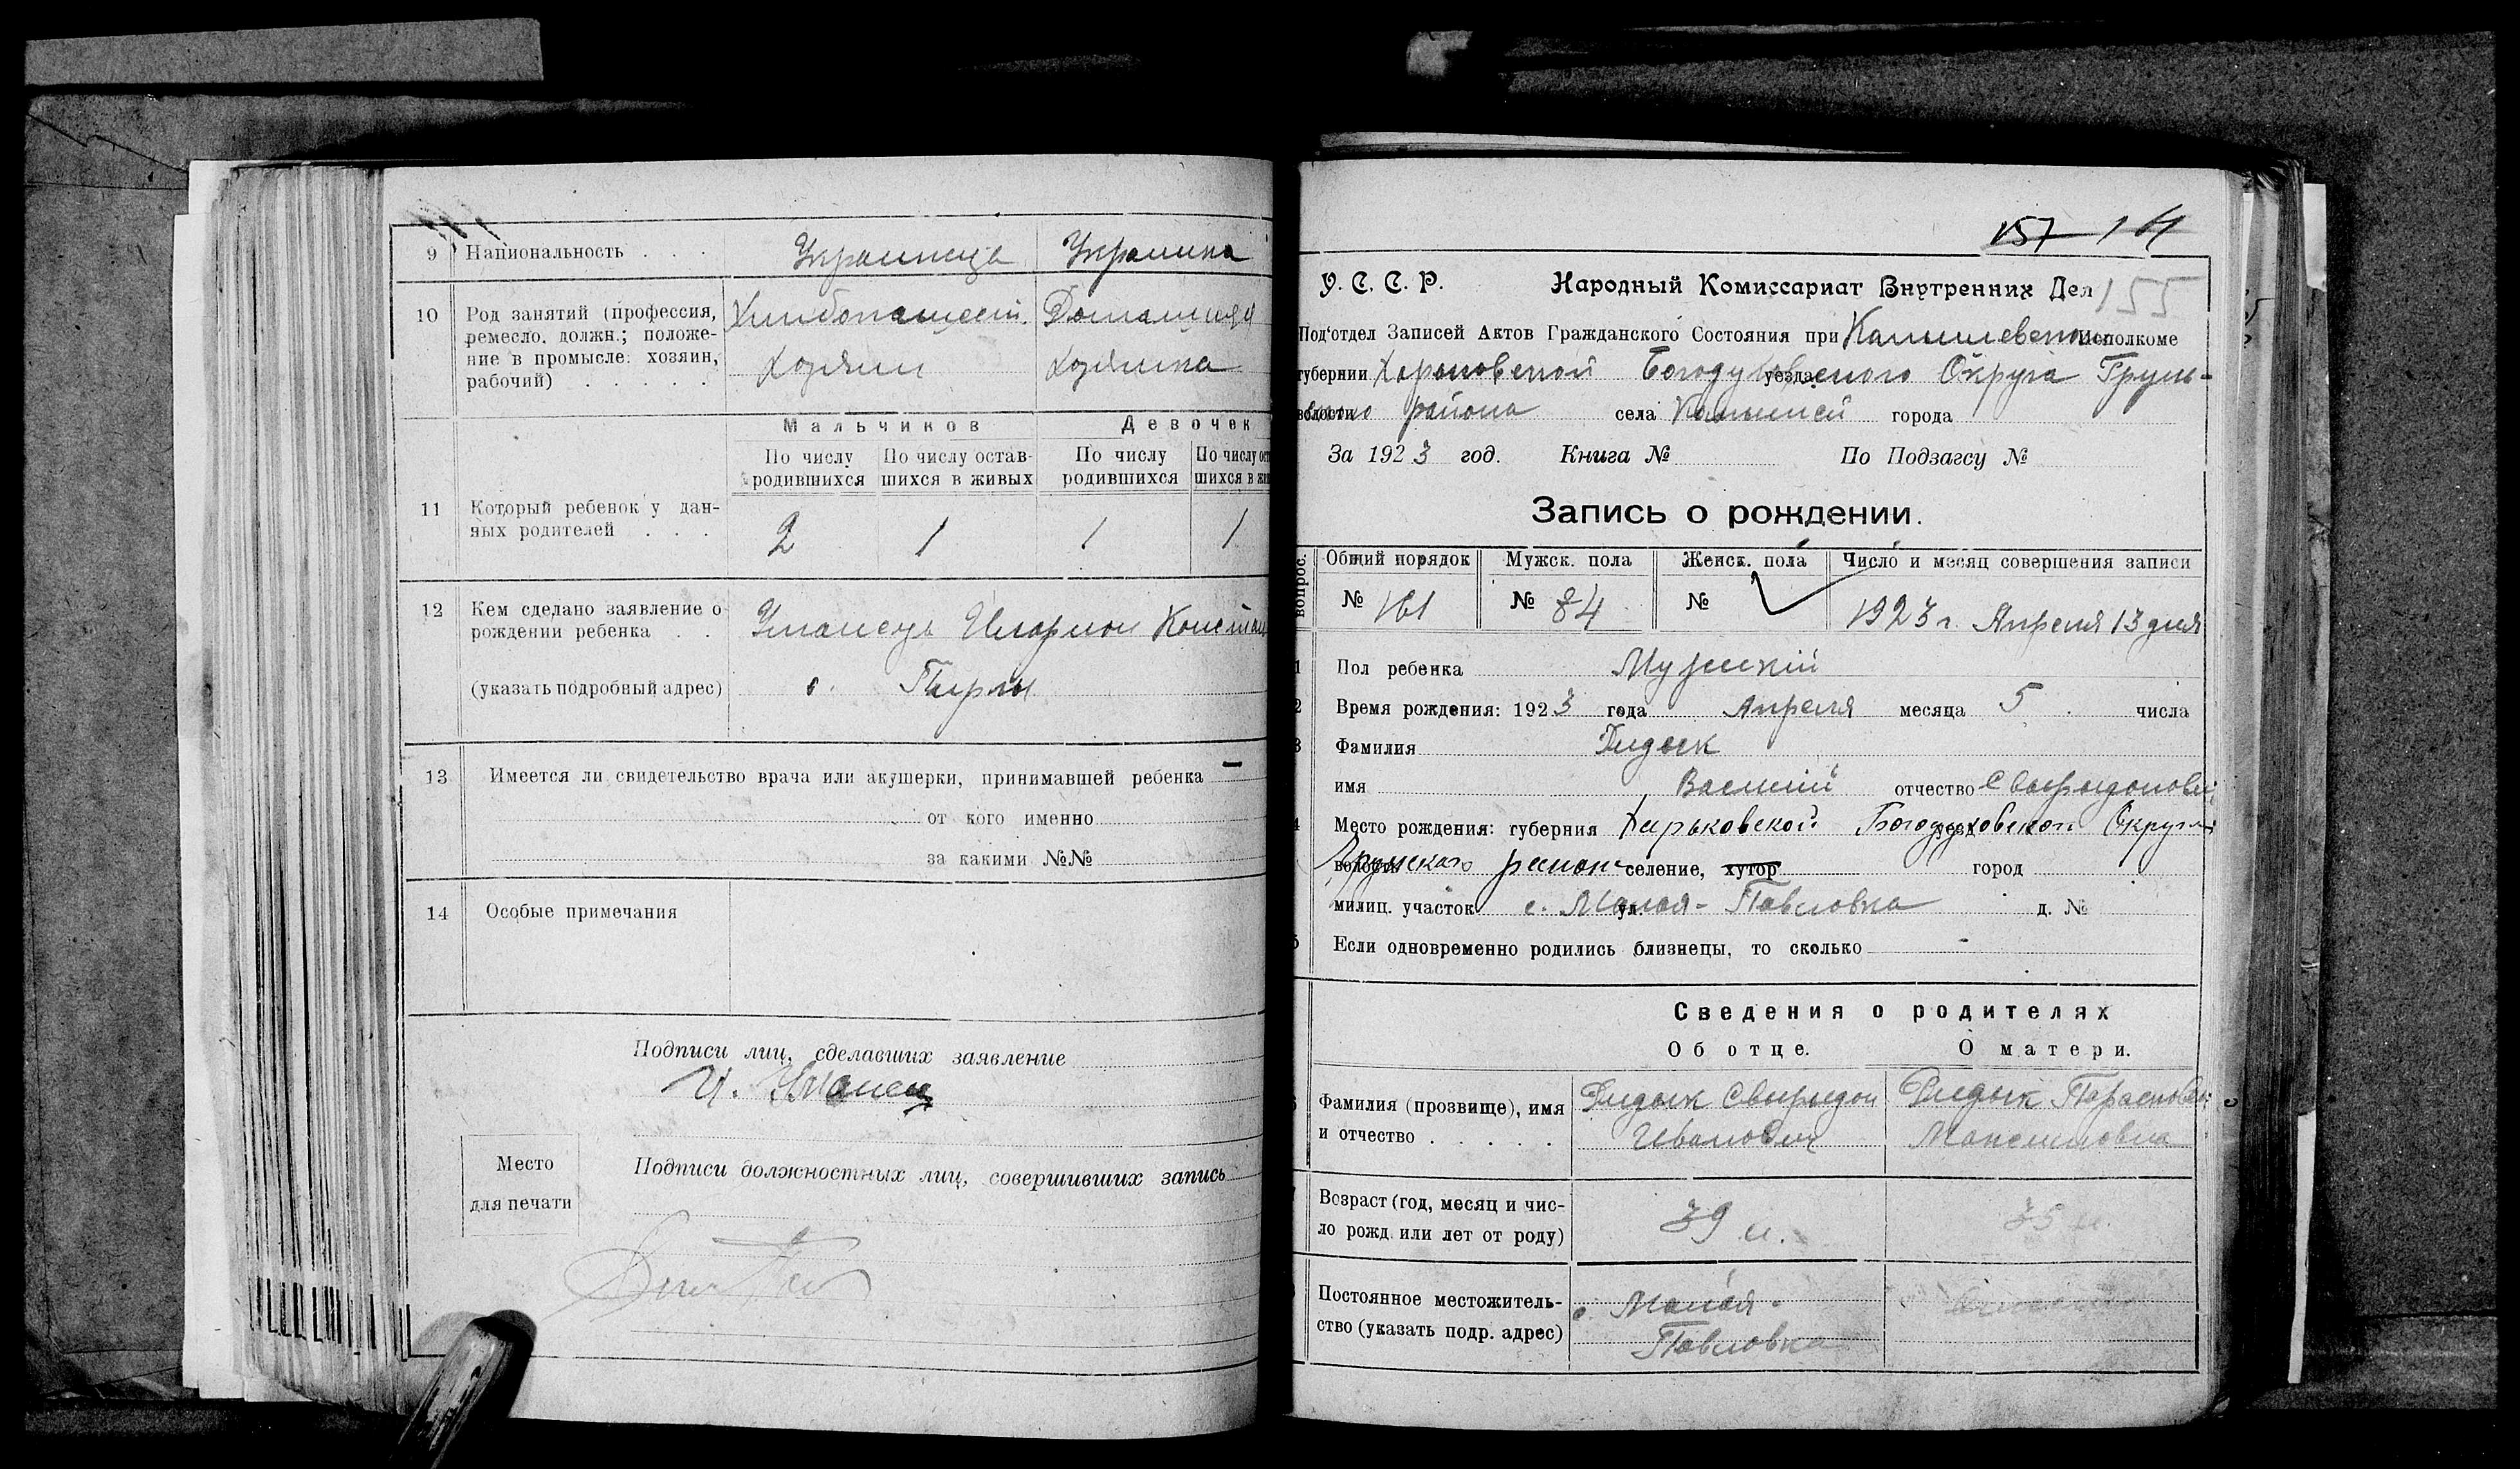 9 Национальность . . . Украинец Украинка
10 Род занятий (профессия, ремесло, должн.; положение в промысле: хозяин, рабочий) . . . . .
Хозяин Хозяйка
Мальчиков Девочек
По числу родившихся По числу оставшихся в живых По числу родившихся По числу
11 Который ребенок у данных родителей . . .
2 1 1 1
12 Кем сделано заявление о рождении ребенка . .
Уманець Иларион
(указать подробный адрес) с.
13 Имеется ли свидетельство врача или акушерки, принимавшей ребенка —
от кого именно
за какими №№
14 Особые примечания
Подписи лиц, сделавших заявление
И. Уманец
Место для печати
Подписи должностных лиц, совершивших запись
157 161
155
У. С. С. Р. Народный Комиссариат Внутренних Дел
Под'отдел Записей Актов Гражданского Состояния при исполкоме
губернии Харьковской Богодуховского Округа
уезда
волости района села города
За 1923 год. Книга № По Подзагсу №
Запись о рождении.
вопрос. Общий порядок Мужск. пола Женск. пола Число и месяц совершения записи
№ 161 № 84 № 1923 г. Апреля 13 дня
Пол ребенка Мужский
Время рождения: 1923 года Апреля месяца 5 числа
Фамилия Дидык
имя Василий отчество
Место рождения: губерния Харьковской Богодуховской Округи
уезд
волости селение, хутор город
милиц. участок с. Малая-Павловка ул. д. №
Если одновременно родились близнецы, то сколько -
Сведения о родителях
Об отце. О матери.
Фамилия (прозвище), имя и отчество . . . . .
Дидык Свыридон Иванович
Дидык Максимовна
Возраст (год, месяц и число рожд. или лет от роду)
39 л. 35 л.
Постоянное местожительство (указать подр. адрес)
с. Малая-
Павловка